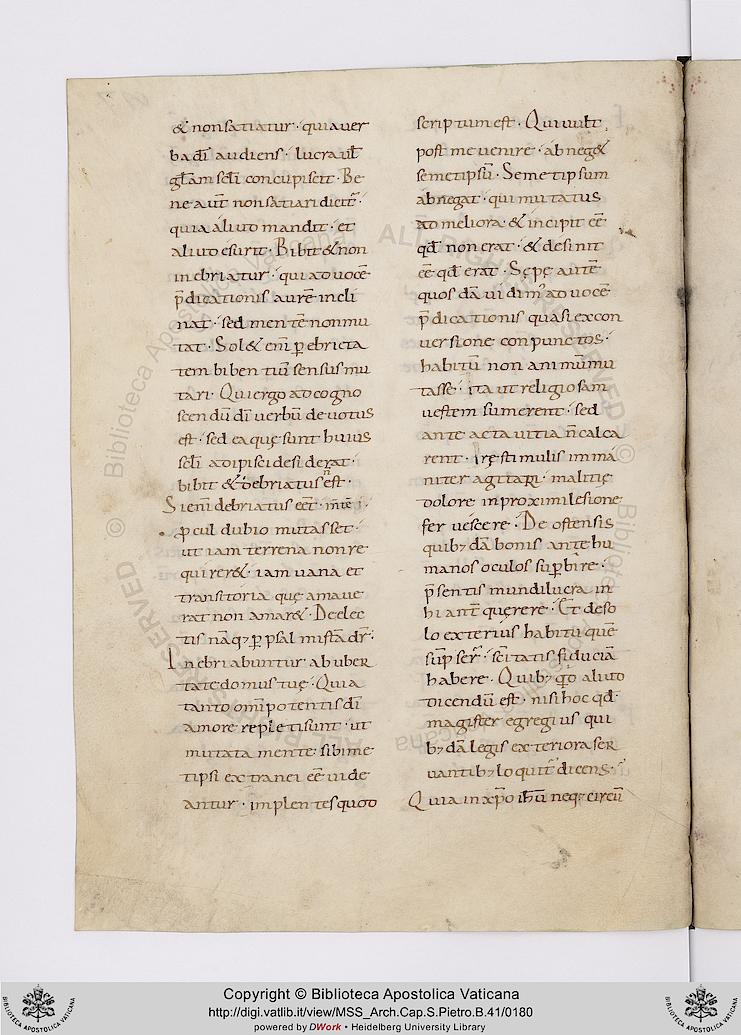 & non satiatur · quia ver
ba dī audiens · lucra ul̄
gl̄am scl̄i concupiscit · Be
ne aut̄ non satiari dicit̄ ·
quia aliud mandit · et
aliud esurit · Bibit & non
inebriatur · qui ad uocē
p̄dicationis aurē incli
nat · sed mentē non mu
tat · Sol& eni᷎ p̱ ebrieta
tem bibentiū sensus mu
tari · Qui ergo ad cogno
scendū dī uerbū deuotus
est · sed ea quę sunt huius
scl̄i adipisci desiderat ·
bibit & n̄ debriatus est ·
Si enī debriatus eēt · m̄tē
p̱cul dubio mutasset ·
ut iam terrena non re
quirer& · iam uana et
transitoria quę amaue
rat non amar& · De elec
tis nāq; p̱ psalmistā dr̄ ·
Inebriabuntur ab uber
tate domus tuę · Quia
tanto om̄ipotentis dī
amore repleti sunt · ut
mutata mente sibime
tipsi extranei eē uide
antur · implentes quod
scriptum est · Qui uult
post me uenire · abneg&
semetipsū · Semetipsum
abnegat · qui mutatus
ad meliora · & incipit eē
qđ non erat · & desinit
eē qđ erat · Sępę autē
quosdā uidim' ad uocē
p̄dicationis quasi ex con
uersione conpunctos ·
habitū non animū mu
tasse · ita ut religiosam
uestem sumerent · sed
ante acta uitia n̄ calca
rent · irę stimulis inma
niter agitari · malitię
dolore in proximi lesione
feruescere · De ostensis
quib; dā bonis ante hu
manos oculos sup̱bire ·
p̄sentis mundi lucra in
hianter̄ querere · Et de so
lo exterius habitu quē
sūpser̄ · sc̄itatis fiduciā
habere · Quib; q̊d aliud
dicendū est · nisi hoc qđ
magister egregius qui
b; dā legis exteriora ser
uantib; loquit̄ dicens ·
Quia in xp̄o ih̄u neq; circū
Copyright © Biblioteca Apostolica Vaticana
http://digi.vatlib.it/view/MSS_Arch.Cap.S.Pietro.B.41/0180
powered by DWork • Heidelberg University Library
BIBLIOTECA APOSTOLICA VATICANA
BIBLIOTECA APOSTOLICA VATICANA